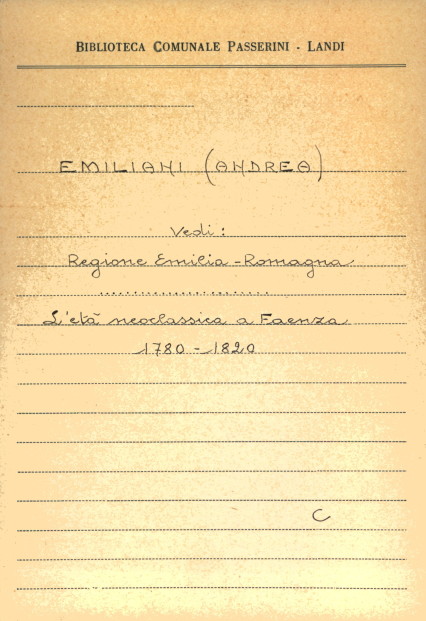 BIBLIOTECA COMUNALE PASSERINI - LANDI
EMILIANI (ANDREA)
Vedi:
Regione Emilia-Romagna
......................
L'età neoclassica a Faenza
1780-1820
C